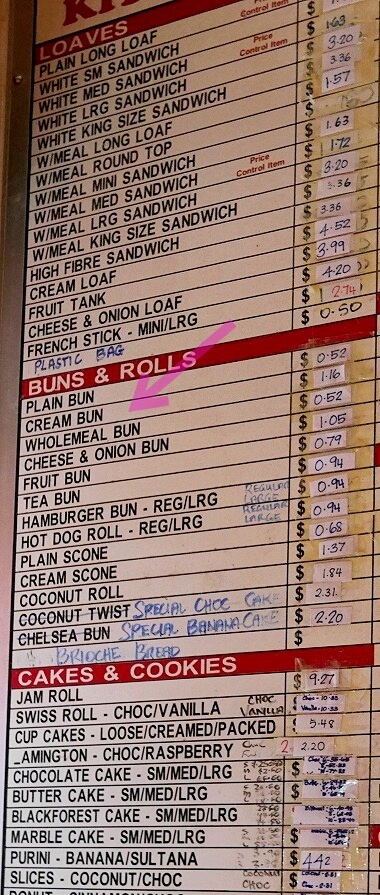 LOAVES
PLAIN LONG LOAF Price Control Item $ 1.63
WHITE SM SANDWICH $ 3.20
WHITE MED SANDWICH Price Control Item $ 3.36
WHITE LRG SANDWICH $ 1.57
WHITE KING SIZE SANDWICH $
W/MEAL LONG LOAF $ 1.63
W/MEAL ROUND TOP $ 1.72
W/MEAL MINI SANDWICH Price Control Item $ 3.20
W/MEAL MED SANDWICH $ 3.36
W/MEAL LRG SANDWICH $ 3.36
W/MEAL KING SIZE SANDWICH $ 4.52
HIGH FIBRE SANDWICH $ 3.99
CREAM LOAF $ 4.20
FRUIT TANK $ 2.74
CHEESE & ONION LOAF $ 0.50
FRENCH STICK - MINI/LRG
PLASTIC BAG
BUNS & ROLLS
PLAIN BUN $ 0.52
CREAM BUN $ 1.16
WHOLEMEAL BUN $ 0.52
CHEESE & ONION BUN $ 1.05
FRUIT BUN $ 0.79
TEA BUN $ 0.94
HAMBURGER BUN - REG/LRG REGULAR LARGE $ 0.94
HOT DOG ROLL - REG/LRG REGULAR LARGE $ 0.94
PLAIN SCONE $ 0.68
CREAM SCONE $ 1.37
COCONUT ROLL $ 1.84
COCONUT TWIST SPECIAL CHOC CAKE $ 2.31
CHELSEA BUN SPECIAL BANANA CAKE $ 2.20
BRIOCHE BREAD $
CAKES & COOKIES
JAM ROLL $ 9.27
SWISS ROLL - CHOC/VANILLA CHOC VANILLA $
CUP CAKES - LOOSE/CREAMED/PACKED $ 5.48
LAMINGTON - CHOC/RASPBERRY 2.20
CHOCOLATE CAKE - SM/MED/LRG $
BUTTER CAKE - SM/MED/LRG $
BLACKFOREST CAKE - SM/MED/LRG $
MARBLE CAKE - SM/MED/LRG $
PURINI - BANANA/SULTANA $ 4.42
SLICES - COCONUT/CHOC COCONUT CHOC $